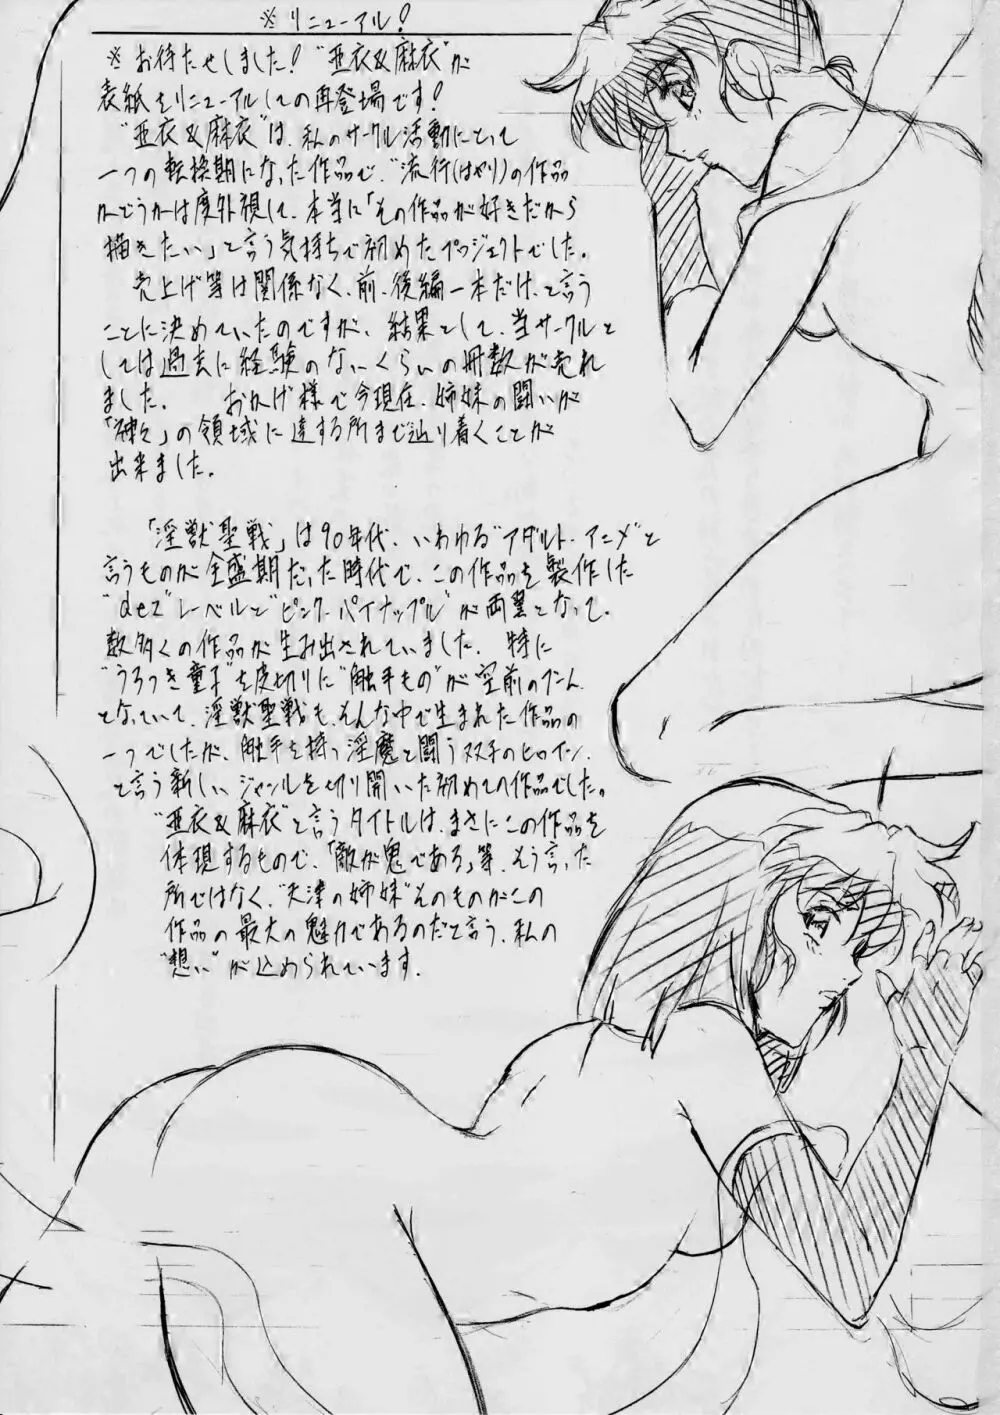 ※リニューアル!
※お待たせしました!“亜衣&麻衣”が
表紙をリニューアルしての再登場です!
“亜衣&麻衣”は、私のサークル活動にとって
一つの転換期になった作品で、“流行(はやり)の作品
かどうかは度外視して、本当に「その作品が好きだから
描きたい」と言う気持ちで初めたプロジェクトでした。
売上げ等は関係なく、前、後編一本だけ、と言う
ことに決めていたのですが、結果として、当サークルと
しては過去に経験のないくらいの冊数が売れ
ました。 おかげ様で今現在、姉妹の闘いが
「神々」の領域に達する所まで辿り着くことが
出来ました。
「淫獣聖戦」は90年代、いわゆる“アダルト・アニメ”と
言うものが全盛期だった時代で、この作品を製作した
“dez”レーベルと“ピンク・パイナップル”が両翼となって、
数多くの作品が生み出されていました。特に
“うろつき童子”を皮切りに“触手もの”が空前のブーム
となっていて、淫獣聖戦も、そんな中で生まれた作品の
一つでしたが、触手を持つ淫魔と闘う双子のヒロイン、
と言う新しいジャンルを切り開いた初めての作品でした。
“亜衣&麻衣”と言うタイトルは、まさにこの作品を
体現するもので、「敵が鬼である」等、そう言った
所ではなく、“天津の姉妹”そのものがこの
作品の最大の魅力であるのだと言う、私の
“想い”が込められています。